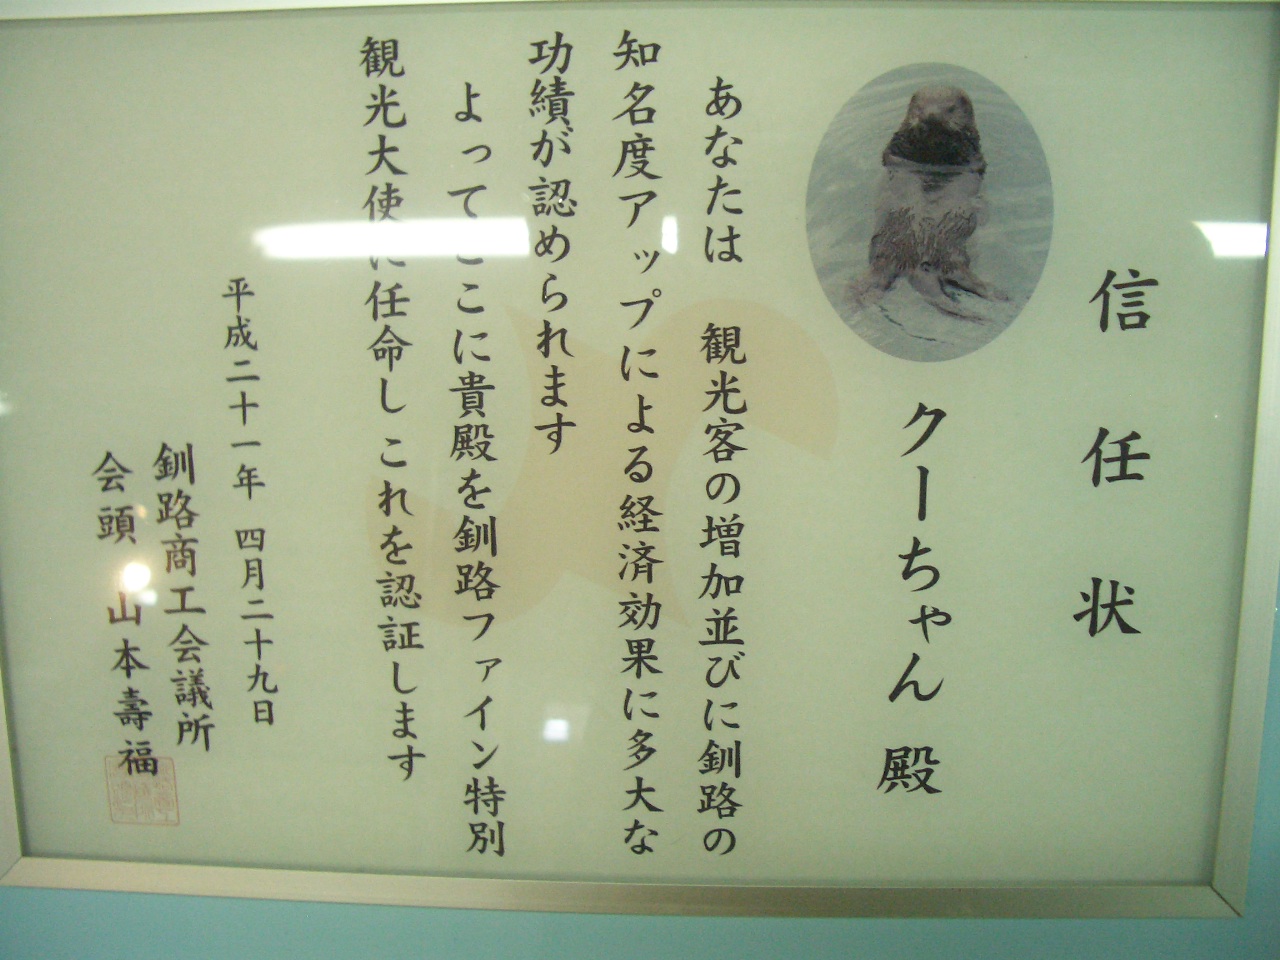 信任状
クーちゃん 殿
あなたは 観光客の増加並びに釧路の
知名度アップによる経済効果に多大な
功績が認められます
よってここに貴殿を釧路ファイン特別
観光大使に任命し これを認証します
平成二十一年 四月二十九日
釧路商工会議所
会頭 山本壽福